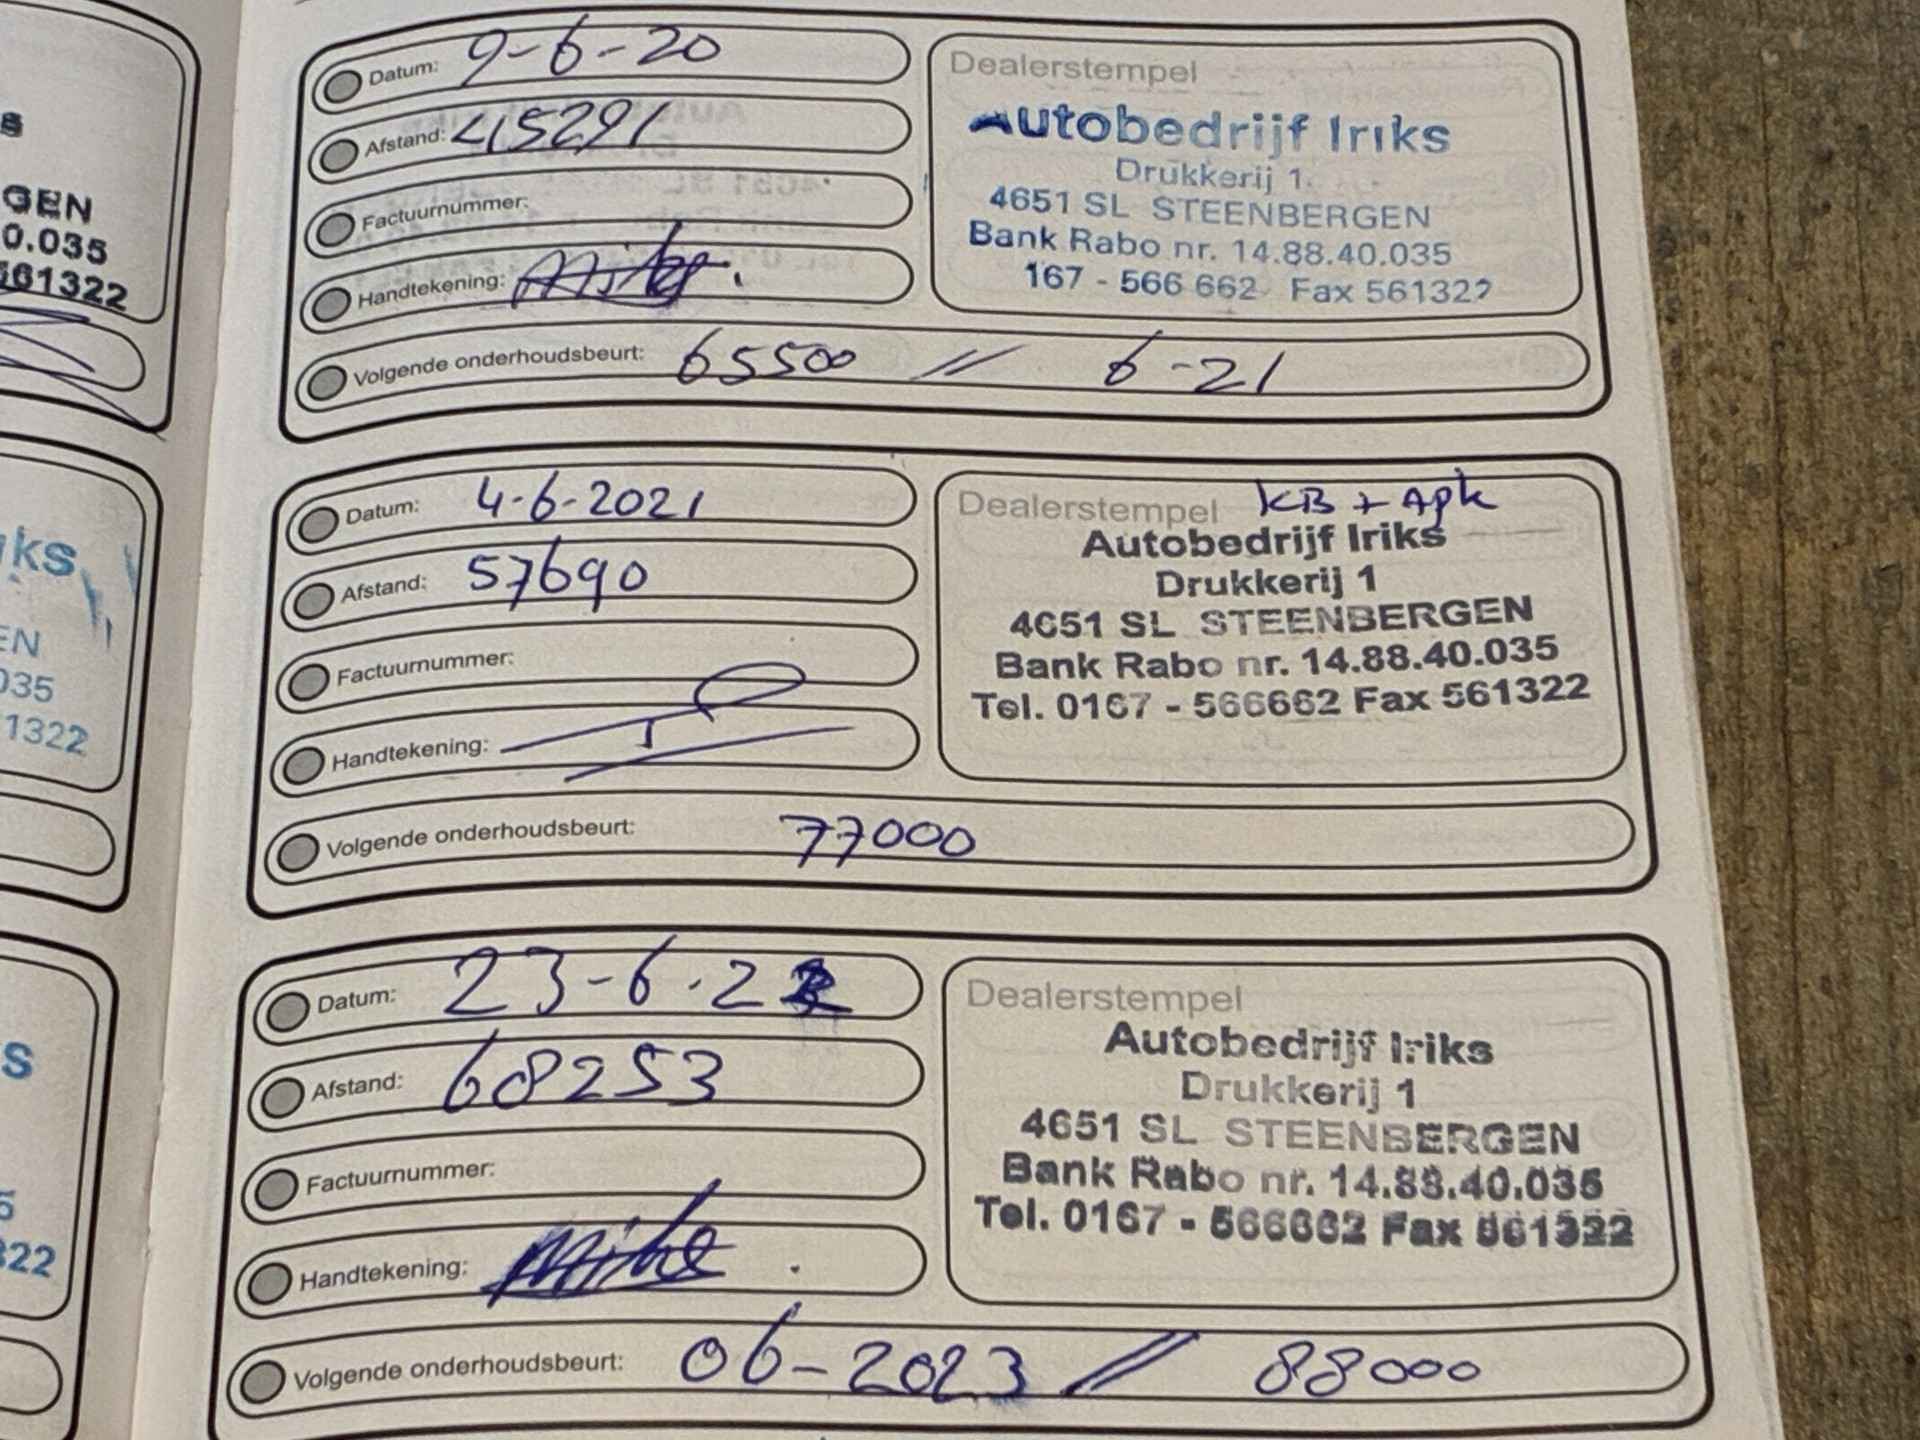 s
GEN
0.035
561322
iks
EN
035
1322
s
5
322
Datum: 9-6-20
Afstand: 45291
Factuurnummer:
Handtekening:
Volgende onderhoudsbeurt: 65500 // 6-21
Dealerstempel
Autobedrijf Iriks
Drukkerij 1
4651 SL STEENBERGEN
Bank Rabo nr. 14.88.40.035
167 - 566 662 Fax 561322
Datum: 4-6-2021
Afstand: 57690
Factuurnummer:
Handtekening:
Volgende onderhoudsbeurt: 77000
Dealerstempel KB + Apk
Autobedrijf Iriks
Drukkerij 1
4651 SL STEENBERGEN
Bank Rabo nr. 14.88.40.035
Tel. 0167 - 566662 Fax 561322
Datum: 23-6-22
Afstand: 68253
Factuurnummer:
Handtekening:
Volgende onderhoudsbeurt: 06-2023 // 88000
Dealerstempel
Autobedrijf Iriks
Drukkerij 1
4651 SL STEENBERGEN
Bank Rabo nr. 14.88.40.035
Tel. 0167 - 566662 Fax 561322